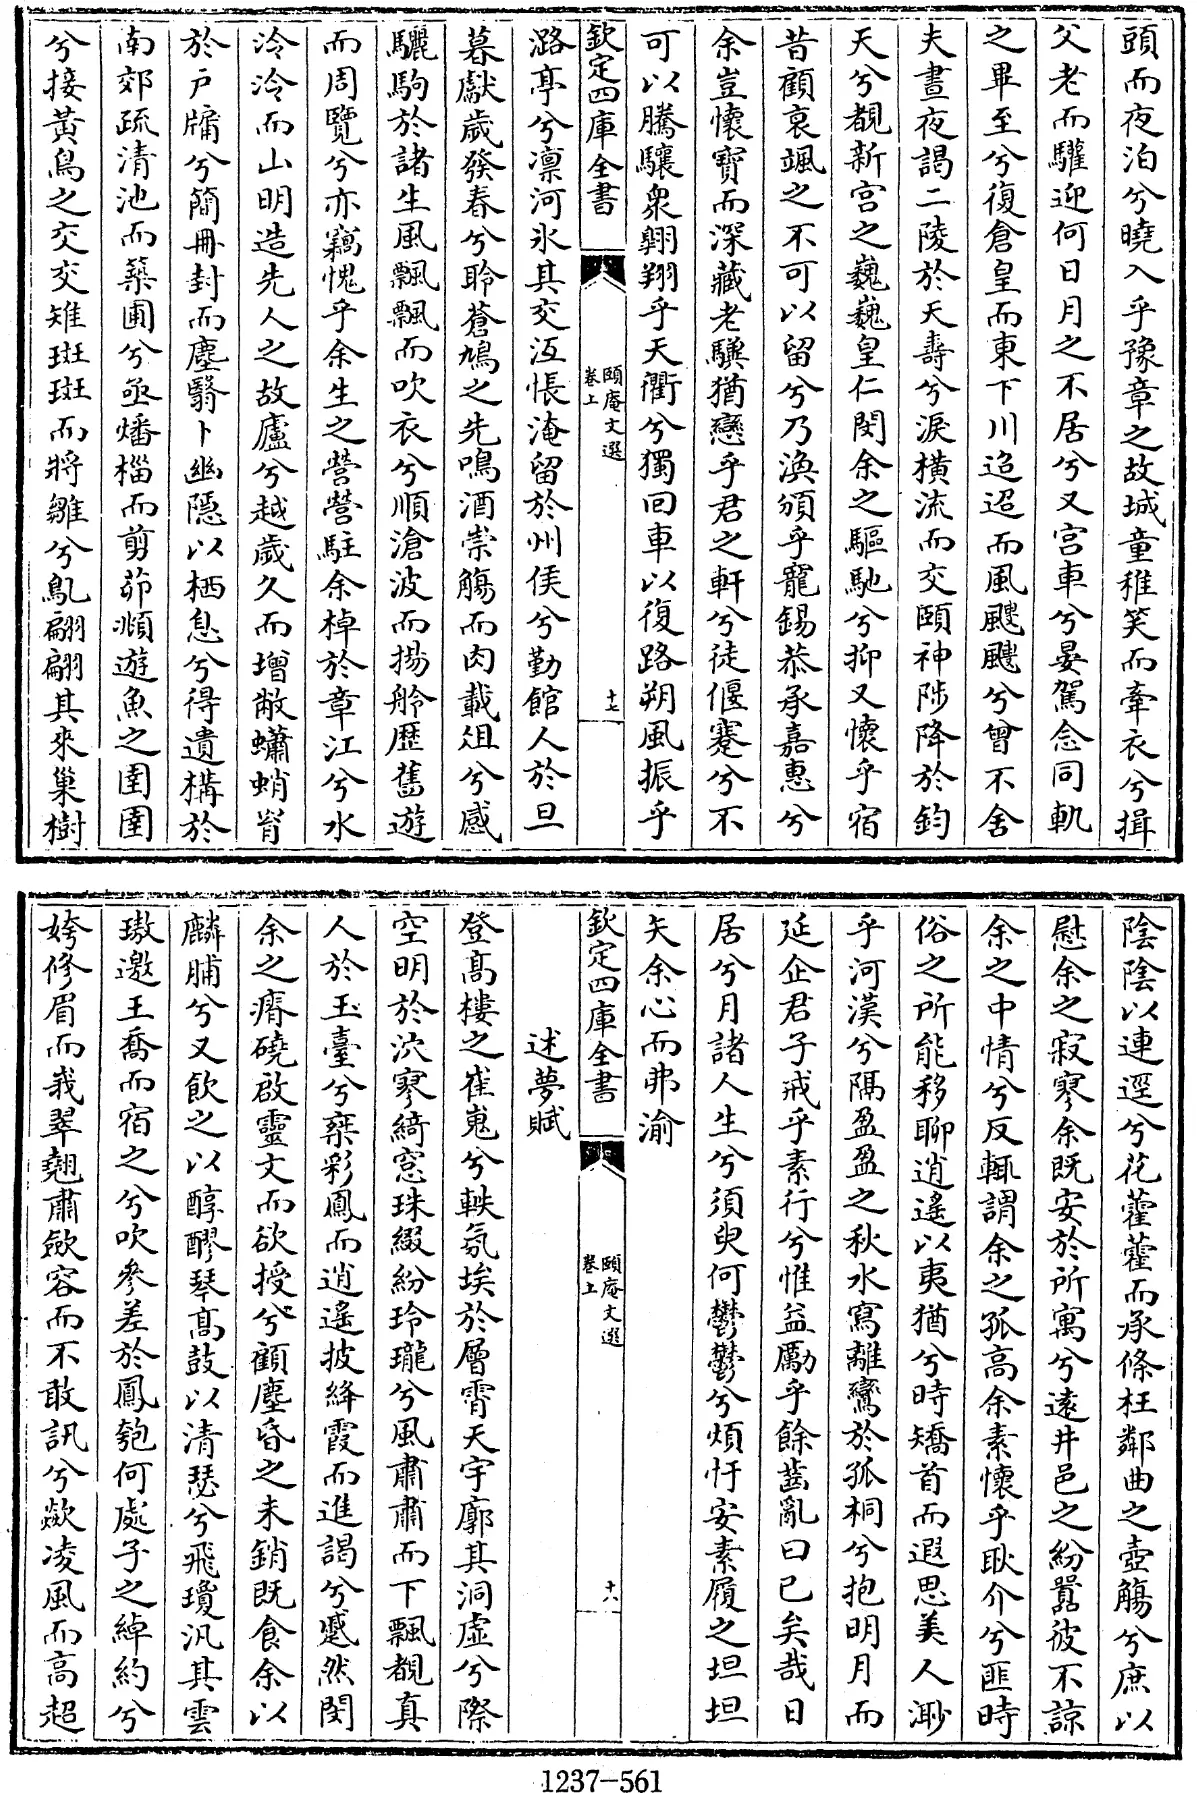 頭而夜泊兮曉入乎豫章之故城童稚笑而牽衣兮揖
父老而驩迎何日月之不居兮又宫車兮晏駕念同軌
之畢至兮復倉皇而東下川迢迢而風颼颼兮曾不舍
夫晝夜謁二陵於天壽兮淚橫流而交頤神陟降於鈞
天兮覩新宫之巍巍皇仁閔余之驅馳兮抑又懷乎宿
昔顧衰颯之不可以留兮乃渙頒乎寵錫恭承嘉惠兮
余豈懷寶而深藏老驥猶戀乎君之軒兮徒偃蹇兮不
可以騰驤衆翺翔乎天衢兮獨回車以復路朔風振乎
欽定四庫全書
頤庵文選
卷上
十七
潞亭兮凛河氷其交沍悵淹留於州侯兮勤館人於旦
暮獻歲發春兮聆蒼鳩之先鳴酒崇觴而肉載俎兮感
驪駒於諸生風飄飄而吹衣兮順滄波而揚舲歷舊遊
而周覽兮亦竊愧乎余生之營營駐余棹於章江兮水
泠泠而山明造先人之故廬兮越歲久而增敝蠨蛸罥
於戸牖兮簡冊封而塵翳卜幽隱以栖息兮得遺構於
南郊疏清池而築圃兮亟燔椔而剪茆頫遊魚之圉圉
兮接黃鳥之交交雉斑斑而將雛兮鳬翩翩其來巢樹
陰陰以連逕兮花藿藿而承條枉鄰曲之壺觴兮庶以
慰余之寂寥余既安於所寓兮遠井邑之紛囂彼不諒
余之中情兮反輒謂余之孤高余素懷乎耿介兮匪時
俗之所能移聊逍遙以夷猶兮時矯首而遐思美人渺
乎河漢兮隔盈盈之秋水寫離鸞於孤桐兮抱明月而
延企君子戒乎素行兮惟益勵乎餘齒亂曰已矣哉日
居兮月諸人生兮須臾何鬱鬱兮煩忓安素履之坦坦
矢余心而弗渝
欽定四庫全書
頤庵文選
卷上
十八
述夢賦
登高樓之崔嵬兮軼氛埃於層霄天宇廓其洞虛兮際
空明於泬寥綺窓珠綴紛玲瓏兮風肅肅而下飄覩真
人於玉臺兮椉彩鳳而逍遙披絳霞而進謁兮蹙然閔
余之瘠磽啟靈文而欲授兮顧塵昏之未銷既食余以
麟脯兮又飲之以醇醪琴高鼓以清瑟兮飛瓊汎其雲
璈邀王喬而宿之兮吹參差於鳳匏何處子之綽約兮
姱修眉而峩翠翹肅斂容而不敢訊兮歘凌風而高超
1237-561